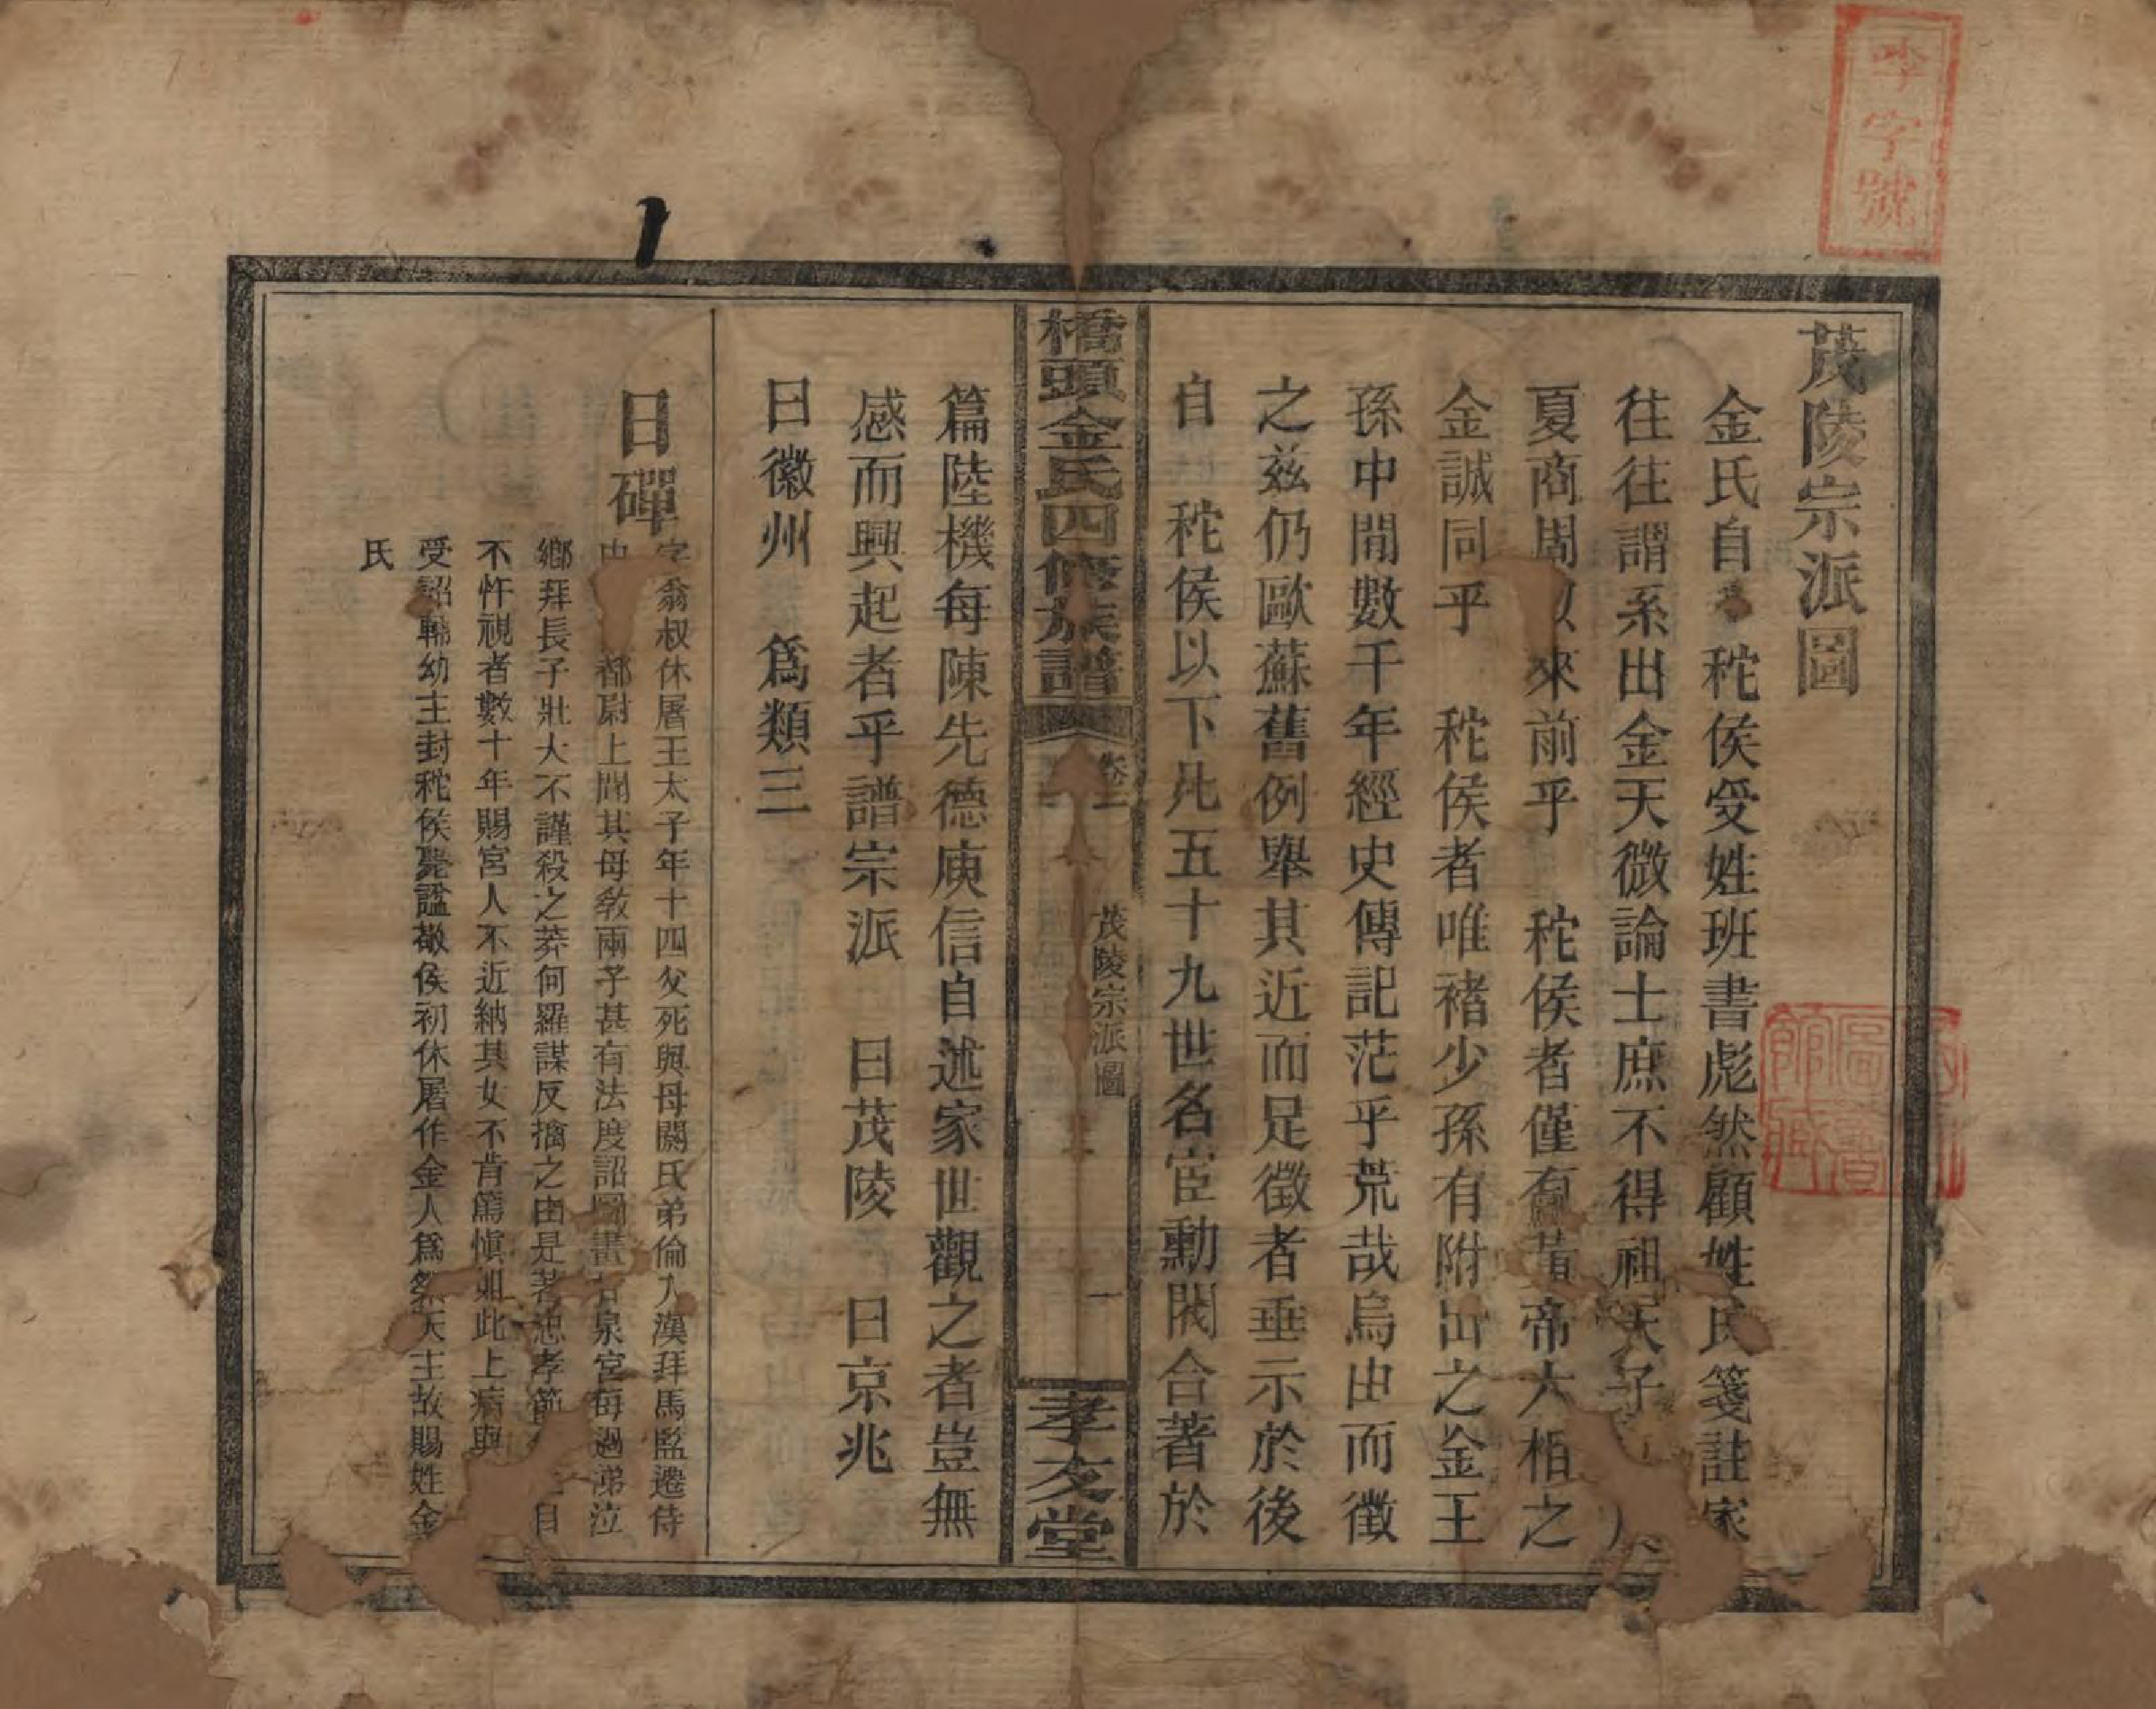 茂陵宗派圖
金氏自 秺侯受姓班書彪然顧姓氏箋註家
往往謂系出金天微論士庶不得祖天子
夏商周以來前乎 秺侯者僅有帝六相之
金誠同乎 秺侯者唯褚少孫有附出之金王
孫中間數千年經史傳記茫乎荒哉烏由而徵
之茲仍歐蘇舊例舉其近而足徵者垂示於後
自 秺侯以下凡五十九世名宦勳閥合著於
橋頭金氏四修族譜
卷一
茂陵宗派圖
一
孝友堂
篇陸機每陳先德庾信自述家世觀之者豈無
感而興起者乎譜宗派 曰茂陵 曰京兆
曰徽州 爲類三
日磾
字翁叔休屠王太子年十四父死與母閼氏弟倫入漢拜馬監遷侍
中 都尉上聞其母教兩子甚有法度詔圖畫甘泉宮每過涕泣
鄉拜長子壯大不謹殺之莽何羅謀反擒之由是著忠孝節 自
不忤視者數十年賜宮人不近納其女不肯篤愼如此上病與
受詔輔幼主封秺侯薨諡敬侯初休屠作金人爲祭天主故賜姓金
氏
李字號